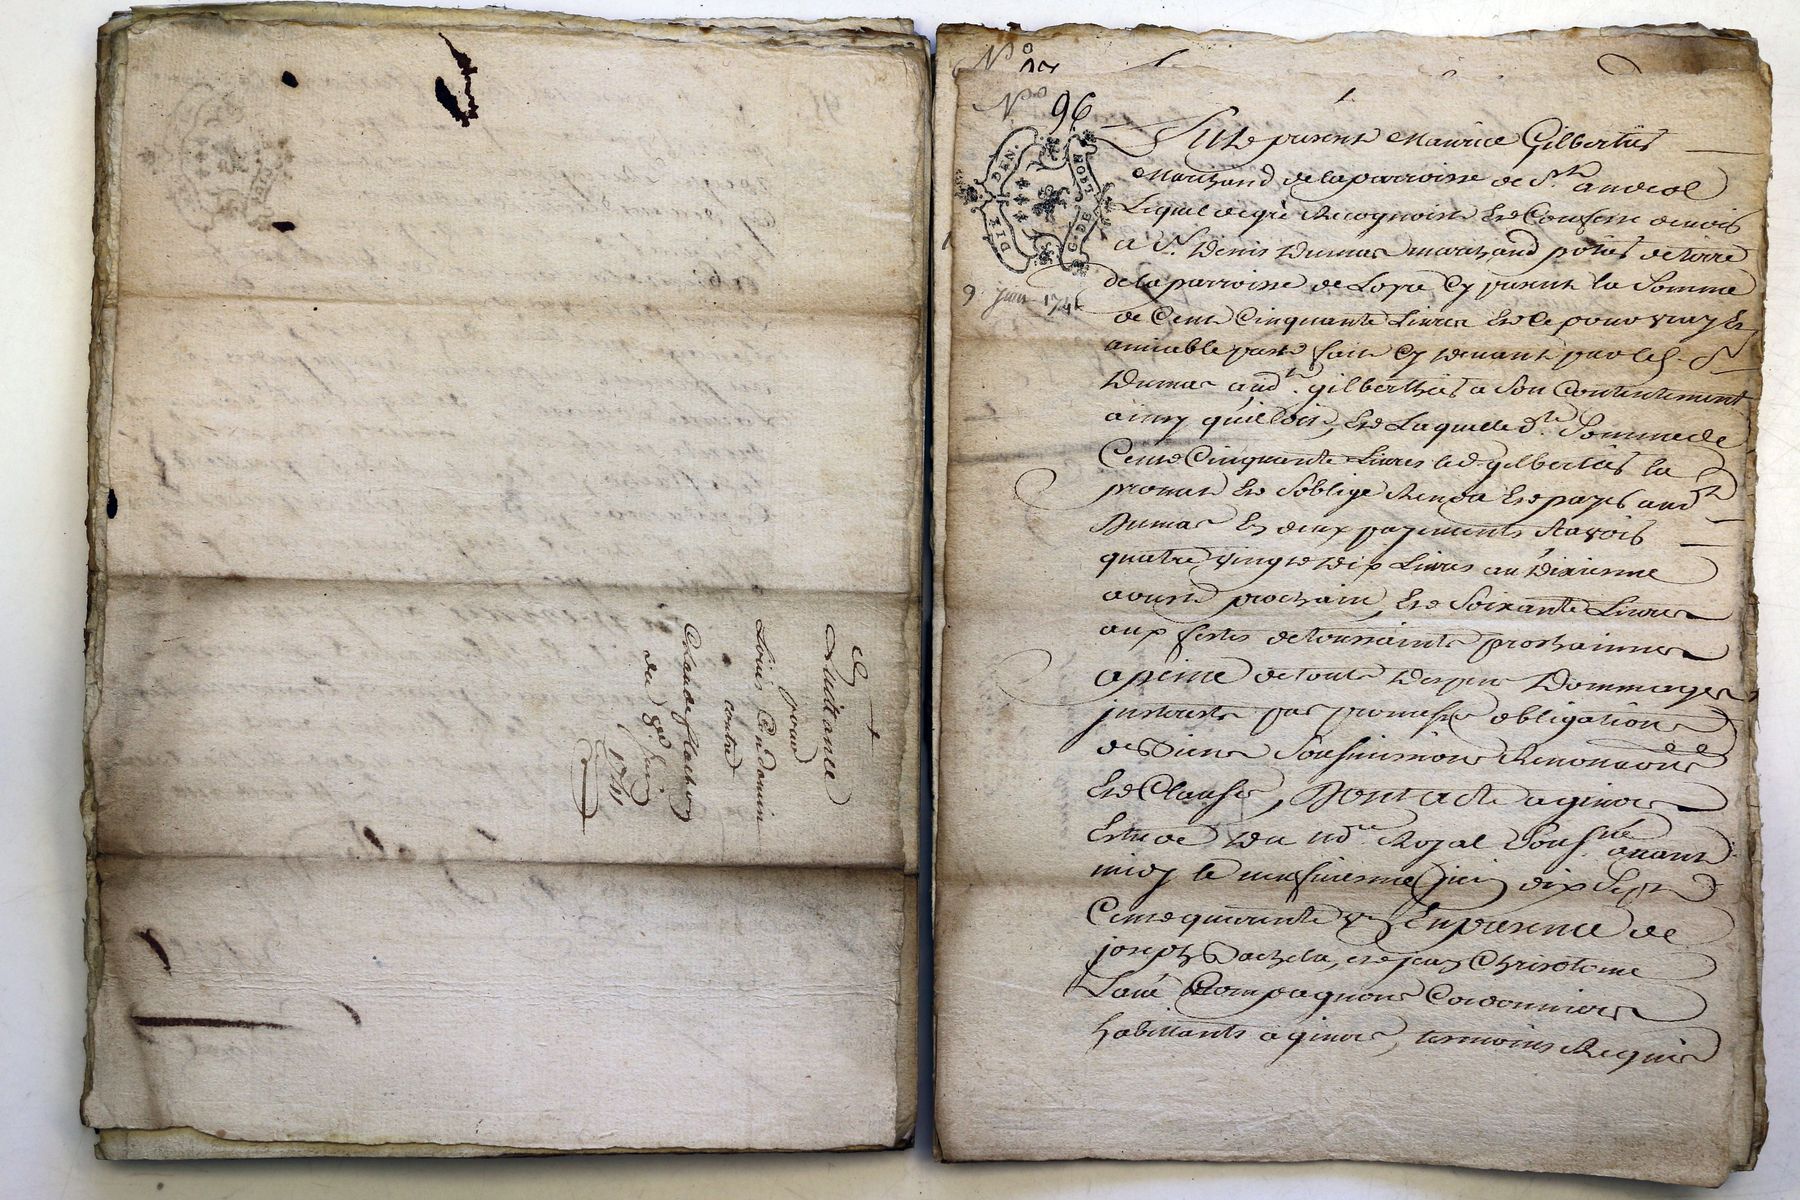 Quittance
pour
Louis Condamin
contre
Claude flachon
du 8e Juin
1741
No
No 96
DIX DEN.
G. DE LION
9 Juin 1741
fut present Maurice Gilbertus
Marchand de la parroisse de St andeol
Lequel de gré Recognoist Et Confesse devoir
a Sr. Denis Dumas marchand potier de terre
de la parroisse de Loyre Cy present la Somme
de Cent Cinquante Livres Et Ce pour vray Et
amiable prest fait Cy devant par led. Sr
Dumas aud.t gilbertus a Son Contentement
ainsy quil dit, Et Laquelle d.te Somme de
Cent Cinquante Livres led. gilbertus la
promet Et Soblige Rendre Et payer aud.t
Dumas En deux payements Scavoir
quatre vingt dix Livres au dixieme
aoust prochain, Et Soixante Livres
aux festes de toussaints prochaines
a peine de touts despens Dommages
interests par promesse obligation
de Biens Soubmissions Renonciations
Et Clauses, Dont acte a givors
Estude du no.re Royal Sous.né avant
midy le neufvieme Juin dix Sept
Cent quarante un En presence de
joseph Bachela, et jean Chrisotome
Compagnons Cordonniers
habittants a givors, temoins Requis